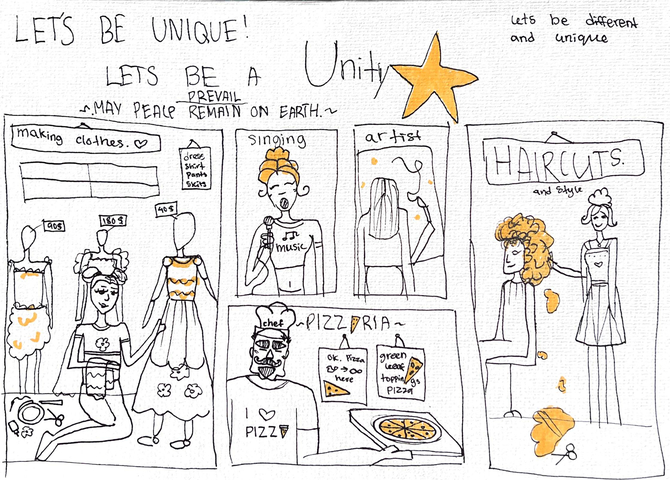 LET'S BE UNIQUE!
Lets be different
and unique
LETS BE A Unity
PREVAIL
~.MAY PEACE REMAIN ON EARTH.~
making clothes. ♡
dress
short
pants
skirts
90$
180$
40$
singing
♫♪
music
artist
HAIRCUTS.
and style
chef
~PIZZERIA~
OK. Pizza
here
green
leaf
toppings
PIZZA
I ♡
PIZZ